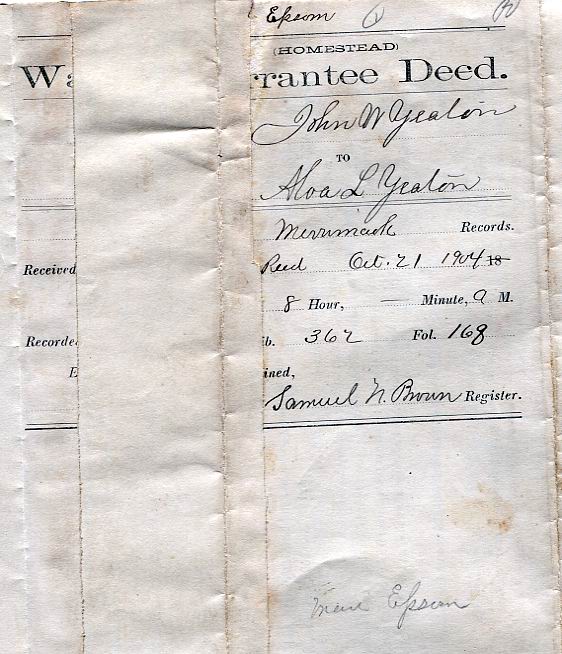 Epsom
(HOMESTEAD)
Wa rrantee Deed.
John W Yeaton
TO
Alva L Yeaton
Merrimack Records.
Received Recd Oct. 21 1904 18
8 Hour, — Minute, A M.
Recorde ib. 362 Fol. 168
E ined,
Samuel N. Brown Register.
Epsom